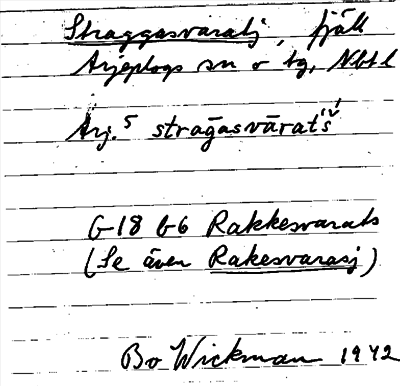 Straggasvaratj, fjäll
Arjeplogs sn o tg, Nbtl
Arj.⁵ stragasvārats
G-18 G6 Rakkesvarats
(Se även Rakesvarasj)
Bo Wickman 1942